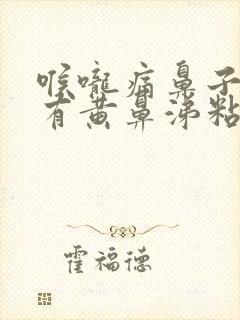 喉咙痛鼻子
有黄鼻涕粘
霍福德